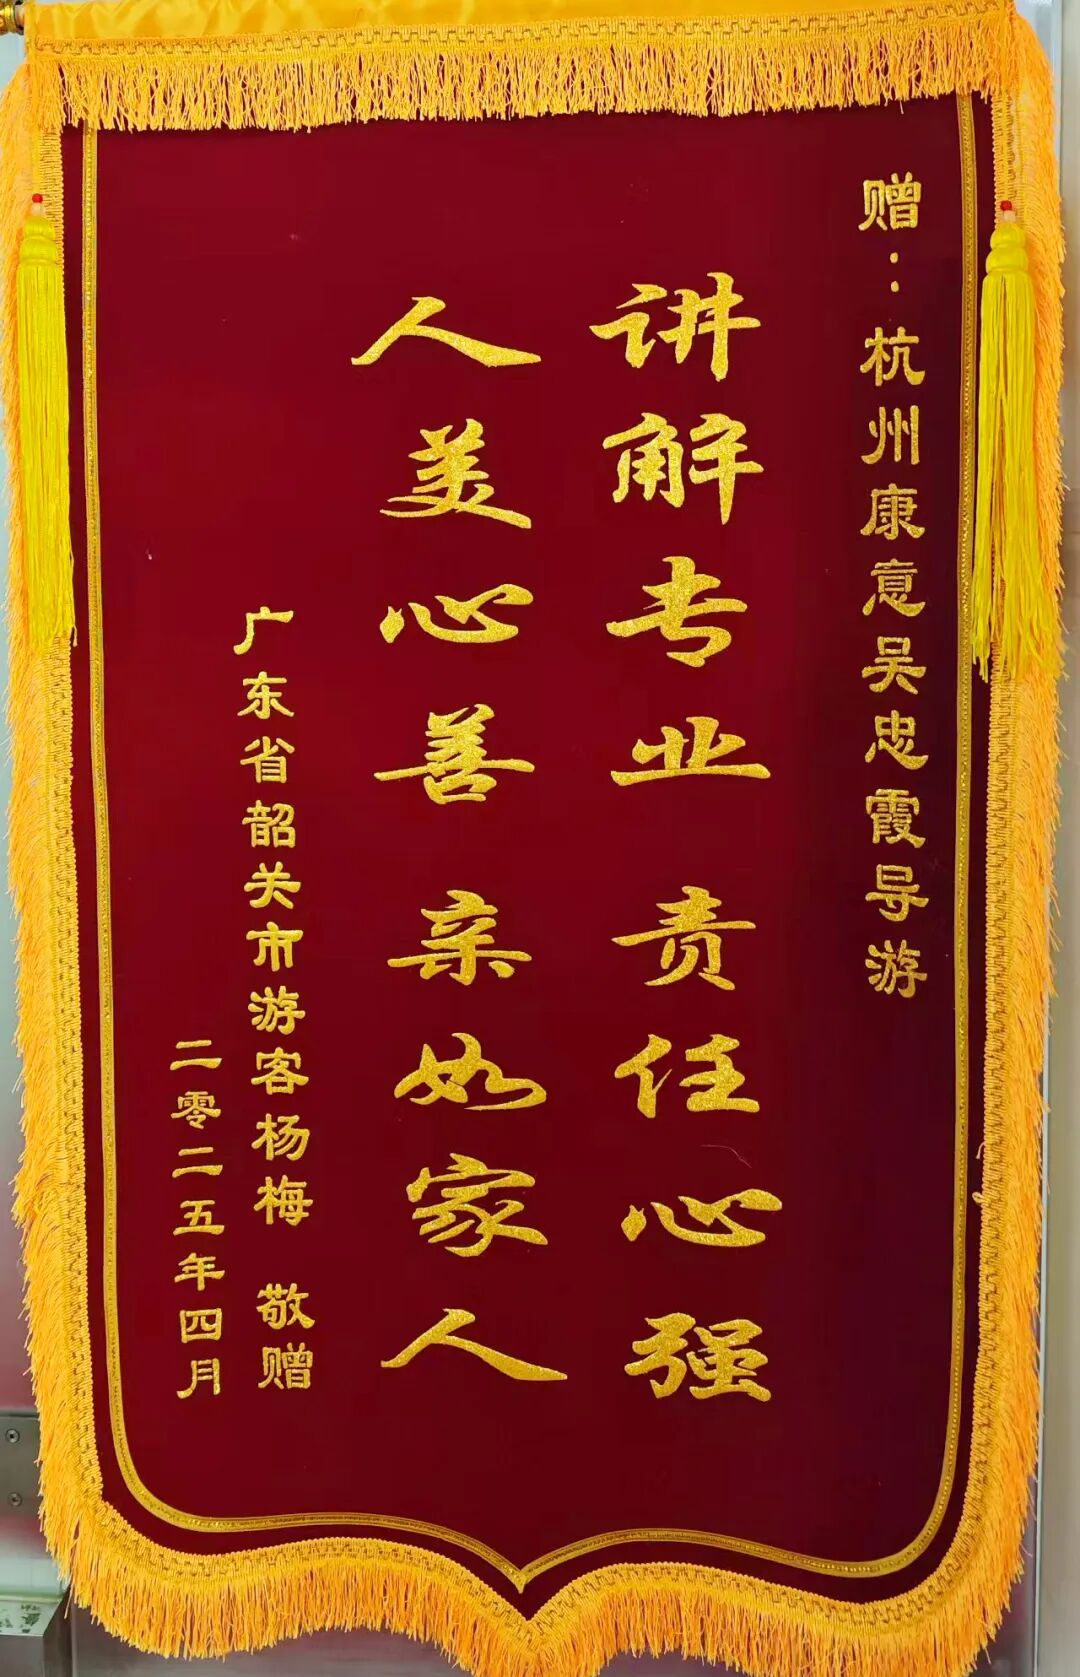 赠：杭州康意吴忠霞导游
讲解专业 责任心强
人美心善 亲如家人
广东省韶关市游客杨梅 敬赠
二零二五年四月